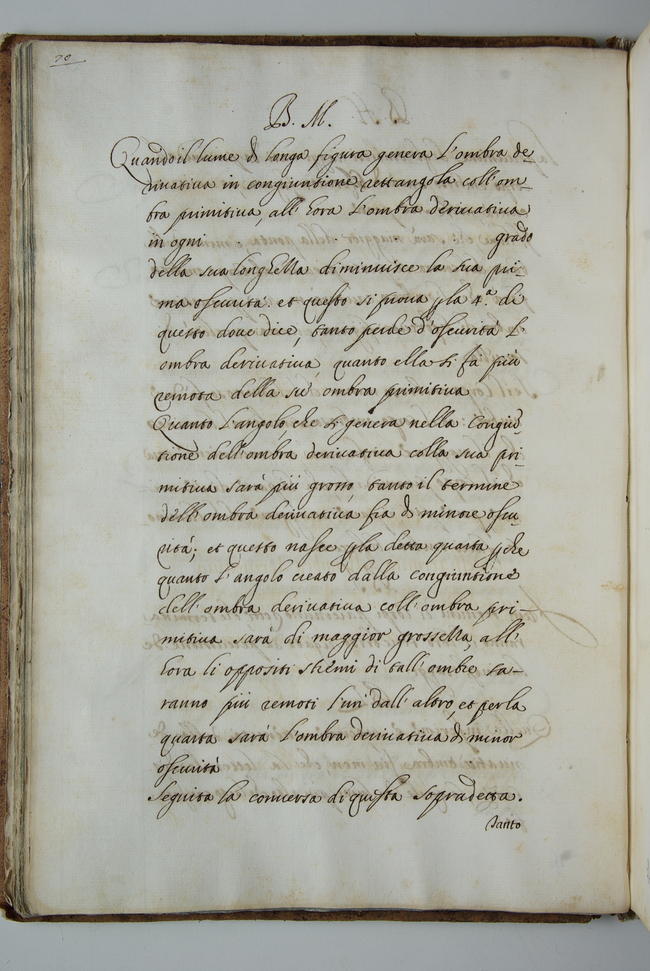 70
B. M.
Quando il lume di longa figura genera l'ombra de-
rivativa in congiuntione rettangola coll'om-
bra primitiva, all'hora l'ombra derivativa
in ogni grado
della sua longhezza diminuisce la sua pri-
ma oscurità. et questo si prova p la 4.ª di
questo dove dice, tanto perde d'oscurità l'
ombra derivativa, quanto ella si fa più
remota della su' ombra primitiva
Quanto l'angolo, che si genera nella congiũ
tione dell'ombra derivativa colla sua pri-
mitiva sarà più grosso, tanto il termine
dell'ombra derivativa fia di minore oscu-
rità; et questo nasce p la detta quarta pche
quanto l'angolo creato dalla congiuntione
dell'ombra derivativa coll'ombra pri-
mitiva sarà di maggior grossezza, all'
hora li oppositi stremi di tall'ombre sa-
ranno più remoti l'un dall'altro, et per la
quarta sarà l'ombra derivativa di minor
oscurità
Seguita la conversa di questa sopradetta.
Tanto